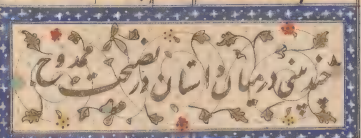 چند بیتی در میان داستان در نصیحت ممدوح